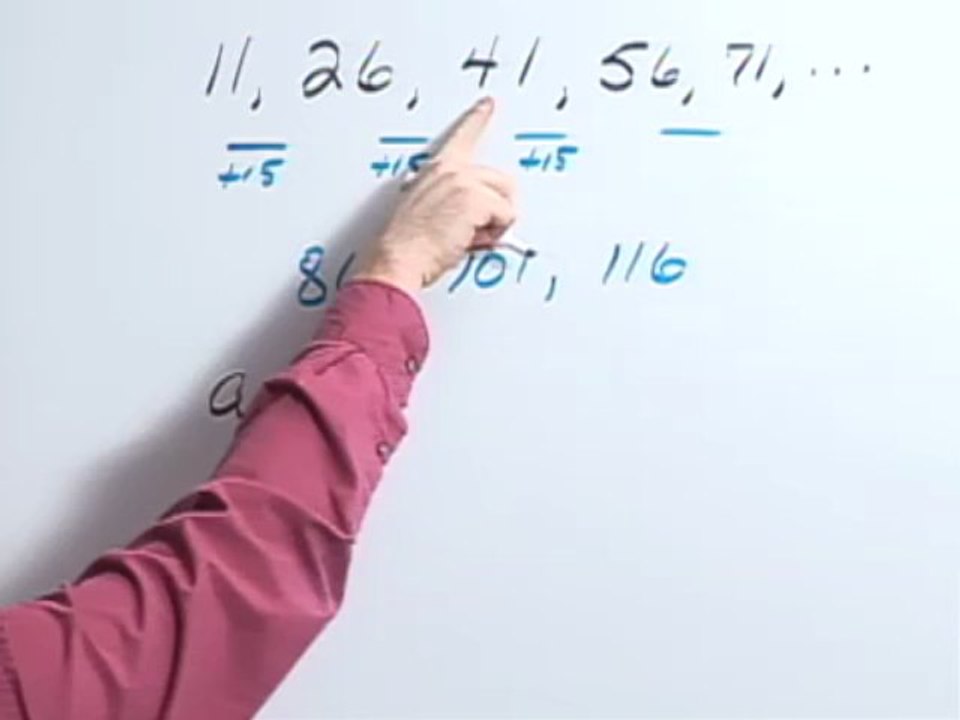 11, 26, 41, 56, 71, ...
+15 +15 +15
101, 116
a